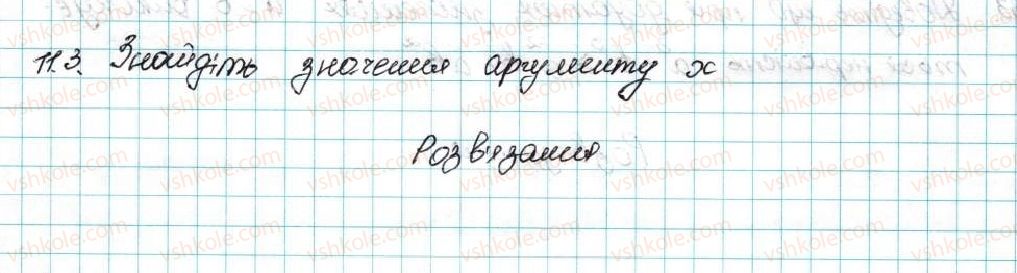 11.3. Знайдіть значення аргументу x
Розв'язання
vshkole.com